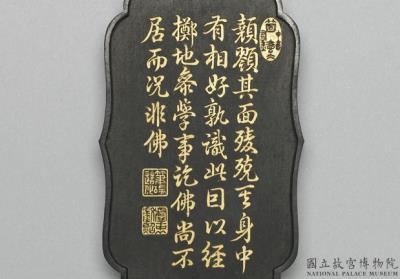 其面其身中
有相好孰識此因以經
擲地參學事訖佛尚不
居而況非佛
國立故宮博物院
NATIONAL PALACE MUSEUM